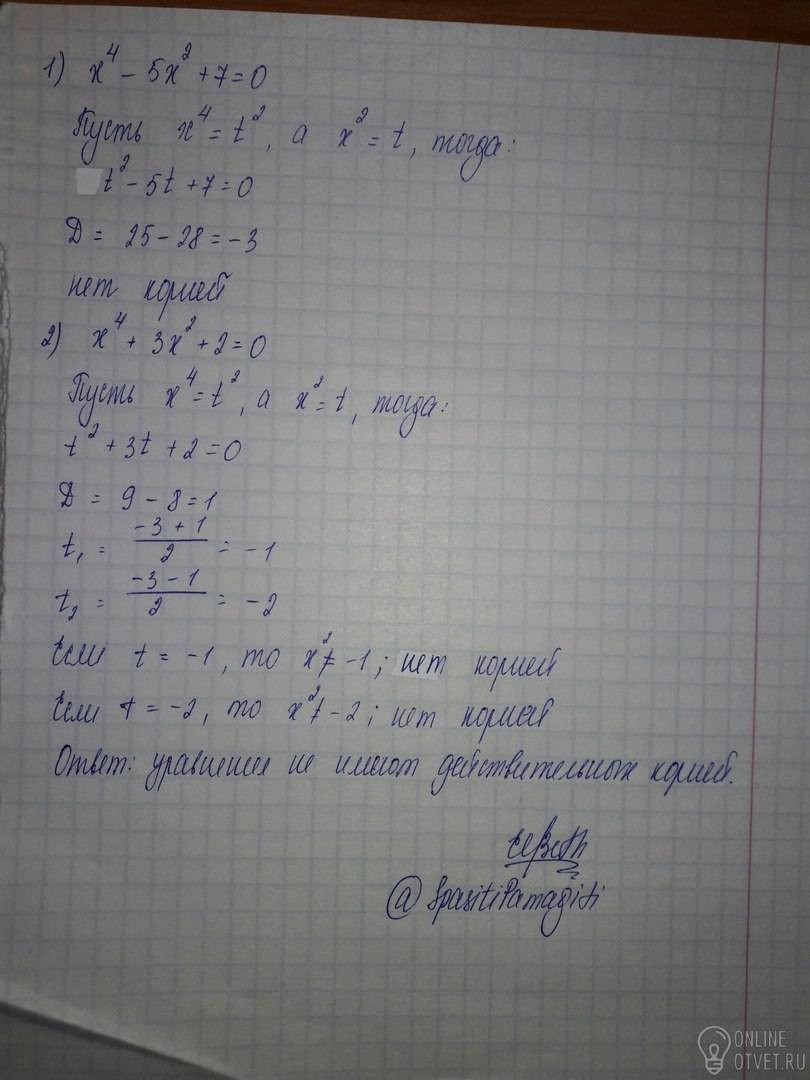 1) x⁴ - 5x² + 7 = 0
Пусть x⁴ = t², а x² = t, тогда:
t² - 5t + 7 = 0
Д = 25 - 28 = -3
нет корней
2) x⁴ + 3x² + 2 = 0
Пусть x⁴ = t², а x² = t, тогда:
t² + 3t + 2 = 0
Д = 9 - 8 = 1
t₁ = (-3 + 1)/2 = -1
t₂ = (-3 - 1)/2 = -2
Если t = -1, то x² ≠ -1; нет корней
Если t = -2, то x² ≠ -2; нет корней
Ответ: уравнения не имеют действительных корней.
@SpasitiPamagiti
ONLINE
OTVET.RU